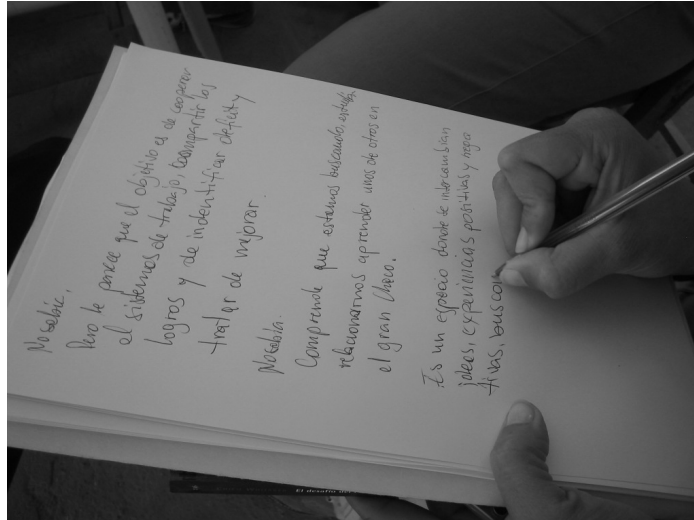 No sabia.
Pero le parece que el objetivo es de cooperar
el sistemas de trabajo, compartir los
logros y de indentificar deficit y
tratar de mejorar.
No sabia.
Comprende que estamos buscando,
relacionarnos aprender unos de otros en
el gran Chaco.
Es un espacio donde se intercambian
ideas, experiencias positivas y nega
tivas, buscan
El desafío del